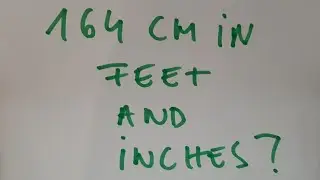 164 CM IN
FEET
AND
INCHES?